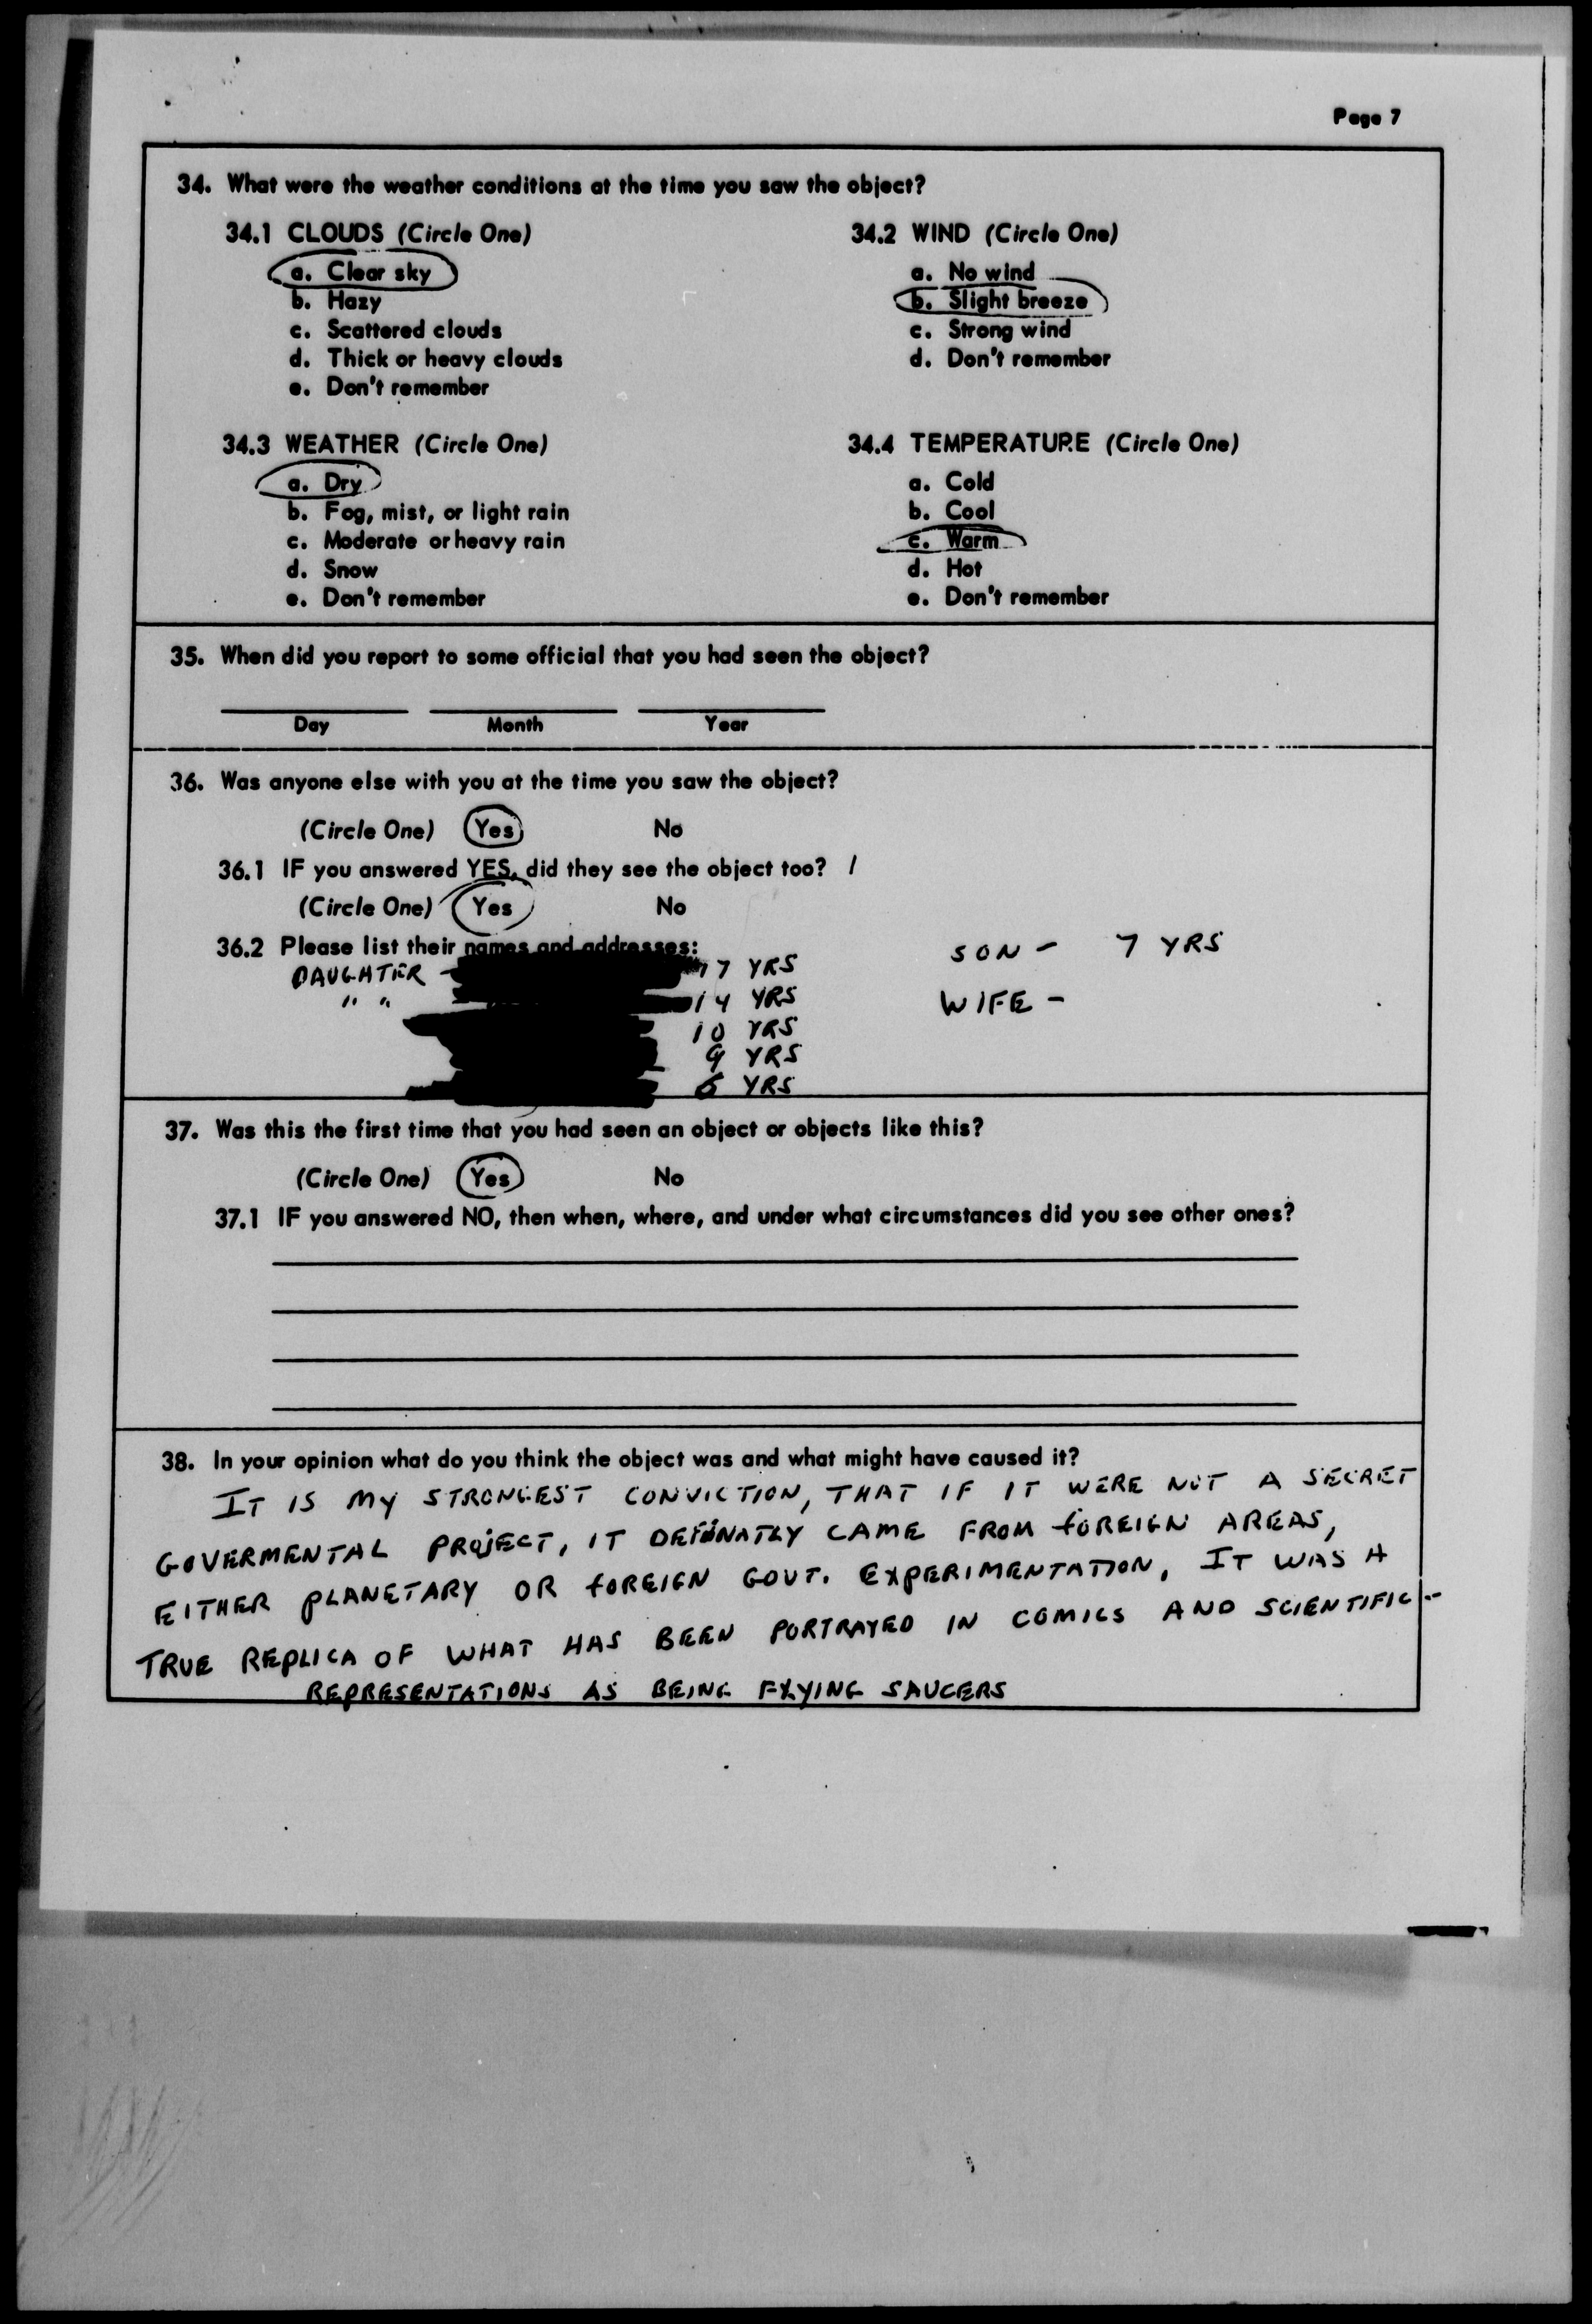 Page 7
34. What were the weather conditions at the time you saw the object?
34.1 CLOUDS (Circle One)
a. Clear sky
b. Hazy
c. Scattered clouds
d. Thick or heavy clouds
e. Don't remember
34.2 WIND (Circle One)
a. No wind
b. Slight breeze
c. Strong wind
d. Don't remember
34.3 WEATHER (Circle One)
a. Dry
b. Fog, mist, or light rain
c. Moderate or heavy rain
d. Snow
e. Don't remember
34.4 TEMPERATURE (Circle One)
a. Cold
b. Cool
c. Warm
d. Hot
e. Don't remember
35. When did you report to some official that you had seen the object?
Day Month Year
36. Was anyone else with you at the time you saw the object?
(Circle One) Yes No
36.1 IF you answered YES, did they see the object too? /
(Circle One) Yes No
36.2 Please list their names and addresses:
DAUGHTER - 17 YRS
" " 14 YRS
10 YRS
9 YRS
YRS
SON - 7 YRS
WIFE -
37. Was this the first time that you had seen an object or objects like this?
(Circle One) Yes No
37.1 IF you answered NO, then when, where, and under what circumstances did you see other ones?
38. In your opinion what do you think the object was and what might have caused it?
IT IS MY STRONGEST CONVICTION, THAT IF IT WERE NOT A SECRET
GOVERMENTAL PROJECT, IT DEFINATLY CAME FROM FOREIGN AREAS,
EITHER PLANETARY OR FOREIGN GOVT. EXPERIMENTATION, IT WAS A
TRUE REPLICA OF WHAT HAS BEEN PORTRAYED IN COMICS AND SCIENTIFIC -
REPRESENTATIONS AS BEING FLYING SAUCERS